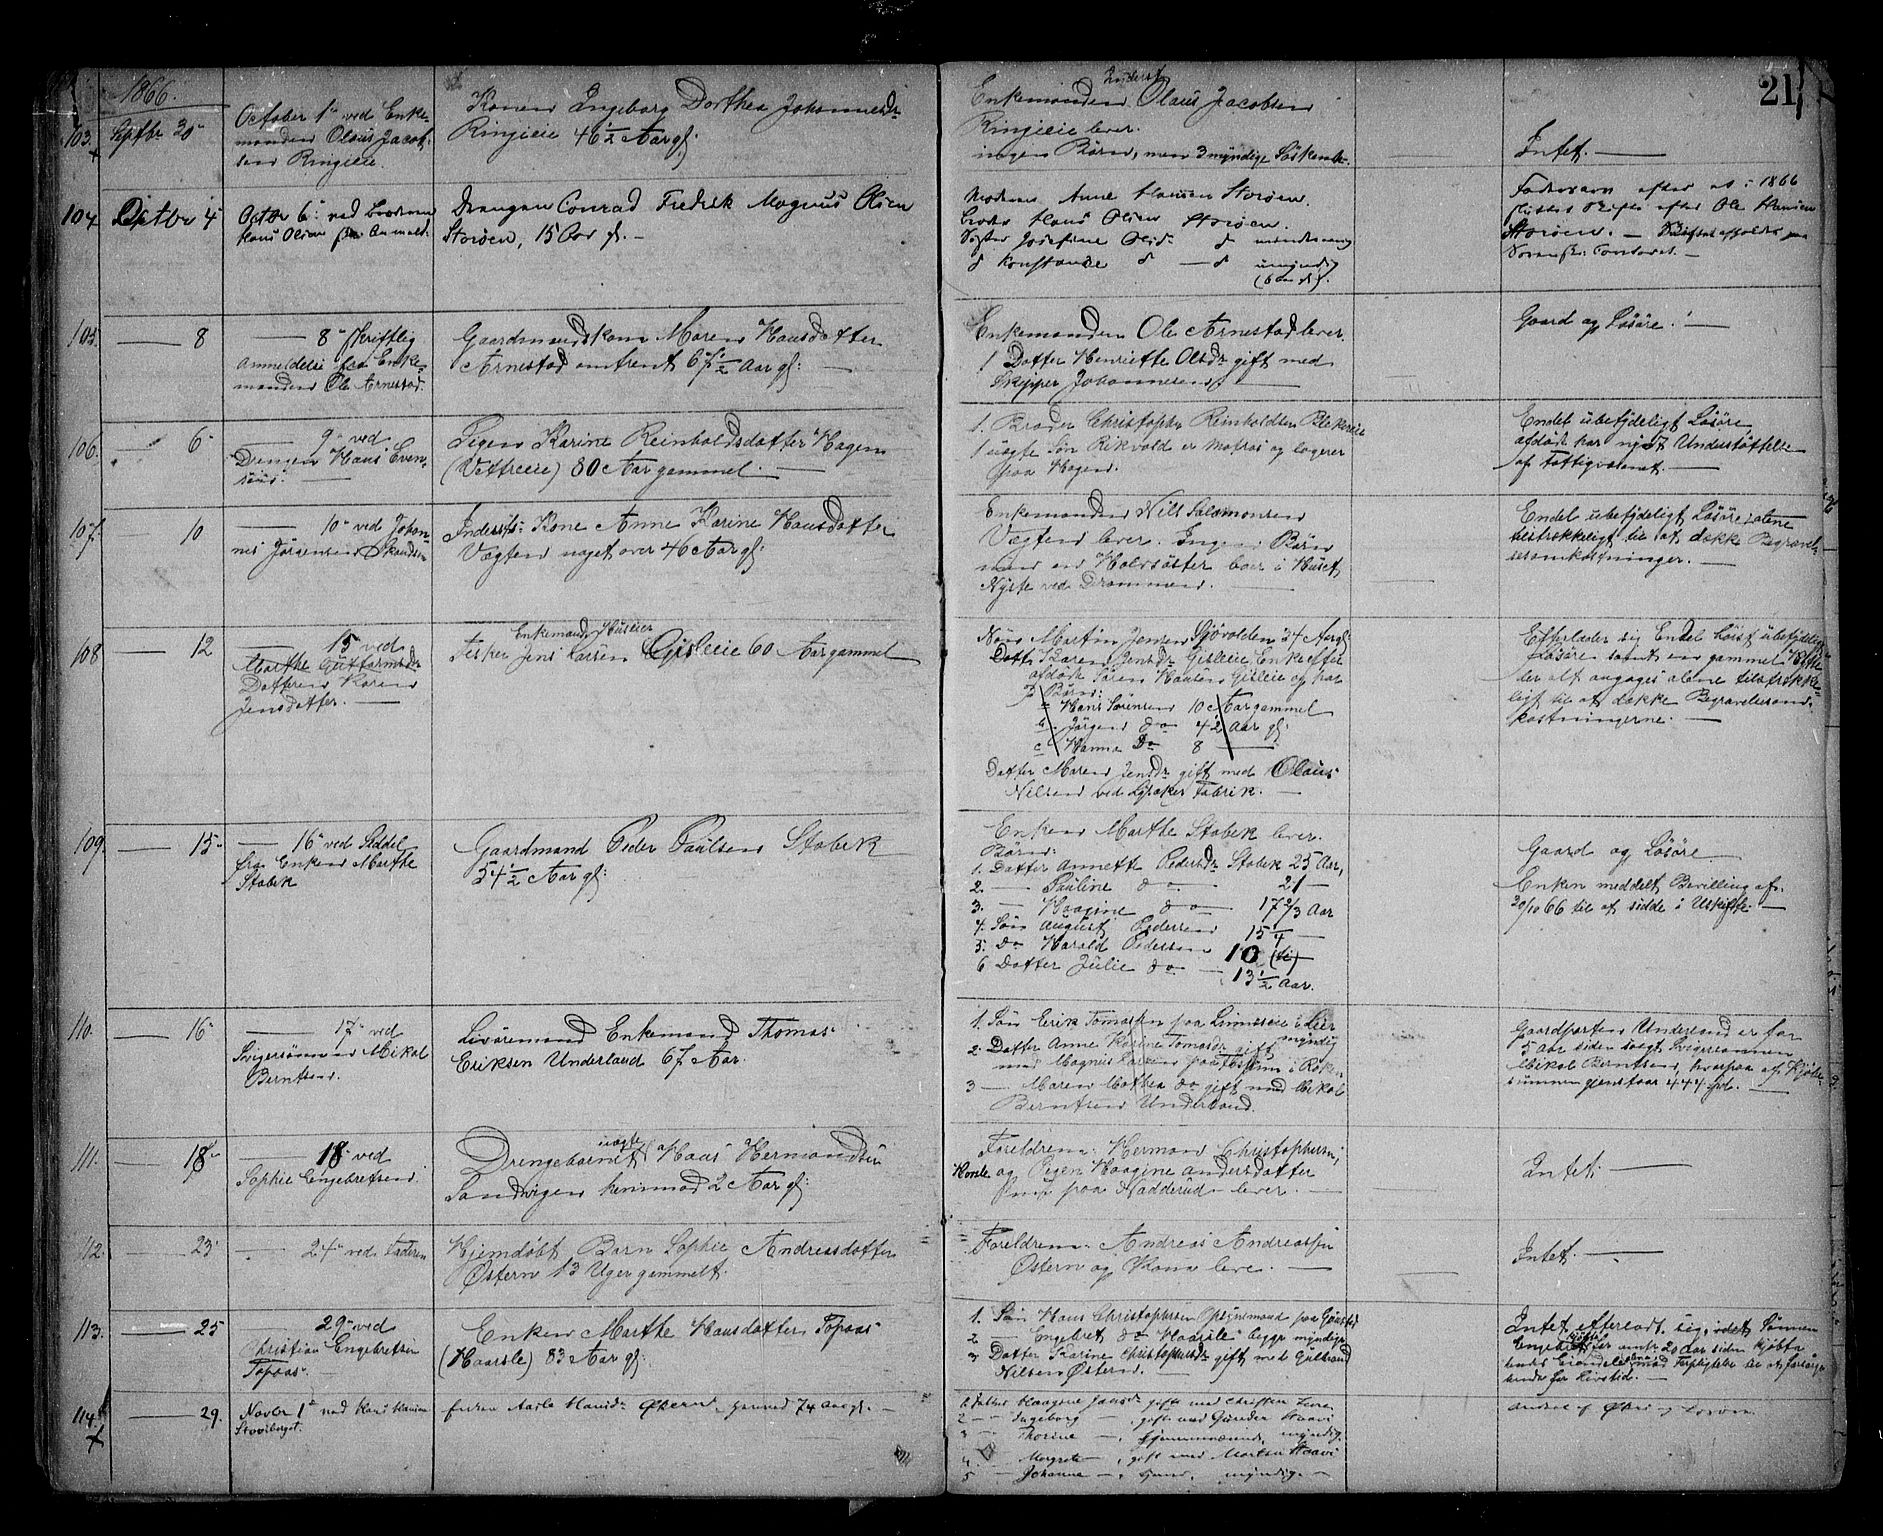 1866.
21
103. Septbr 30
October 1 ved Enke-
manden Olaus Jacob-
sen Ringieie.
Konen Ingeborg Dorthea Johannesdr
Ringieie 46 1/2 Aar gl.
Enkemanden Inderst Olaus Jacobsen
Ringieie lever.
ingen Børn, men 3 myndige Søskende.
Intet.
104 Octbr 4
Octbr 6 ved Broderen
Hans Olsen
Drengen Conrad Fredrik Magnus Olsen
Storøen, 15 Aar gl.
Moderen Anne Hansen Storøen.
Broder Hans Olsen Storøen.
Søster Josefine Olsdr do mindreaarig
do Konstance do do umyndig
(6 Aar gl.)
Fadersarv efter et i 1866
sluttet Skifte efter Ole Hansen
Storøen.
105. 8
8 skriftlig
Anmeldelse fra Enke-
manden Ole Arnestad.
Gaardmandskone Maren Hansdatter
Arnestad omtrent 67 1/2 Aar gl.
Enkemanden Ole Arnestad lever.
1 Datter Henriette Olsdr gift med
Skipper Johannesen
Gaard og Løsøre.
106. 6
9 ved
Drengen Hans Even-
sens.
Pigen Karine Reinholdsdatter Hagen
(Vettreeie) 80 Aar gammel.
1. Broder Christopher Reinholdsen Blekeeie
1 uægte Søn Rikvold er Matros og logerer
paa Hagen.
Endel ubetydeligt Løsøre
afdøde har nydt Understøttelse
af Fattigvæsenet.
107. 10
10 ved Johan-
nes Jørgensen
Inderste Kone Anne Karine Hansdatter
Vægten noget over 46 Aar gl.
Enkemanden Nils Salomonsen
Vægten lever. Ingen Børn
men en Halvsøster boer i Huset
Nyste ved Drammen.
Endel ubetydeligt Løsøre alene
tilstrekkeligt til at dække Begravel-
sesomkostninger.
108 12
15 ved
Marthe Guttormsdr
Datteren Karen
Jensdatter.
Enkemand Huseier
Fisker Jens Larsen Gisleie 60 Aar gammel
Søn Martin Jensen Sjøvolden 34 Aar gl.
Dattr Karen Jensdr Gisleie, Enke efter
afdøde Søren Hansen Gisleie og har
3 Børn:
a Hans Sørensen 10 Aar gammel
b. Jørgen do 4 1/2 Aar gl.
c Hanna Do 8
Datter Maren Jensdr gift med Olaus
Nilsen ved Lysaker Fabrik.
Efterlader sig Endel høist ubetydelig
Løsøre samt en gammel Hytte
der alt angages alene tilstrække-
ligt til at dække Begravelsesom-
kostningerne.
109. 15
16 ved Seddel
fra Enken Marthe
Stabek
Gaardmand Peder Paulsen Stabek
54 1/2 Aar gl.
Enken Marthe Stabek lever.
Børn:
1. Datter Annette Pedersdr Stabek 25 Aar,
2. Pauline do 21
3. Haagine do 17 2/3 Aar
4. Søn August Pedersen 15 1/4
5. Do Harald Pedersen 10 (ti)
6 Datter Julie do 13 1/2 Aar.
Gaard og Løsøre.
Enken meddelt Bevilling af
20/10 66 til at sidde i Uskifte.
110. 16
17 ved
Svigersønnen Mikal
Berntsen.
Livøremand Enkemand Thomas
Eriksen Underland 67 Aar.
1. Søn Erik Tomassen paa Linneseie i Lier
myndig
2. Datter Anne Karine Tomasdr gift
med Magnus Larsen paa Toskum i Røken
3 Maren Mathea do gift med Mikal
Berntsen Underland.
Gaardparten Underland er for
5 Aar siden solgt Svigersønnen
Mikal Berntsen, hvorpaa af Kjøbe-
summen gjenstaar 444 spd.
111. 18
18 ved
Sophie Engebretsen.
Drengebarnet uægte Hans Hermandsen
Sandvigen henimod 2 Aar gl.
Foreldrene Herman Christophersen,
Horsle og Pigen Haagine Andersdatter
paa Nadderud lever.
Intet.
112. 23
24 ved Faderen
Hjemdøbt Barn Sophie Andreasdatter
Østern 13 Uger gammelt.
Foreldrene Andreas Andreassen
Østern og Kone leve.
Intet.
113. 25
29 ved
Christian Engebretsen
Topaas.
Enken Marthe Hansdatter Topaas
(Haarsle) 83 Aar gl.
1. Søn Hans Christophersen Opsynsmand paa
2 Engebret do Haarsle begge myndige
3 Datter Karine Christophersdr gift med Gulbrand
Nilsen Østern.
Intet efterladt sig, idet Sønnen
Engebret for omtr 20 Aar siden kjøbte
hendes Eiendele med Forpligtelse til at forsørge
hende for Livstid.
114. 29.
Novbr 1 ved Hans Hansen
Enken Aarle Hansdr Økern, henved 74 Aar gl.
1. Datter Haagine Jansdr gift med Christen
2 Ingeborg, gift med Gunder Staavi
3 Thorine, hjemmeværende, myndig.
4. Margrete, gift med Morten Staavi
5 Johanne, myndig.